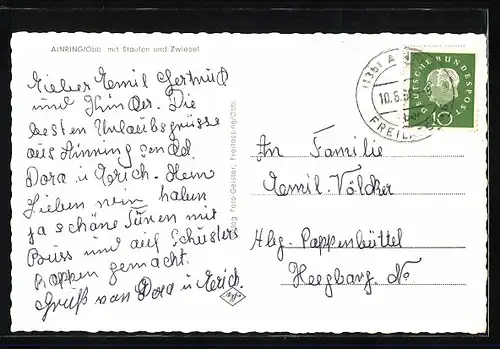 AINRING/Obb. mit Staufen und Zwiesel
Lieber Emil Gertrud
und Kinder. Die
besten Urlaubsgrüsse
aus Ainring sendet
Dora u. Erich.
haben
ja schöne Turen mit
und auf Schusters
Rappen gemacht.
Gruß von Dora u. Erich.
Foto-Geissler, Freilassing/Obb.
(13b) A
10.8.
FREILA
DEUTSCHE BUNDESPOST
10
An Familie
Emil Völcker
Hbg. Pappenbüttel